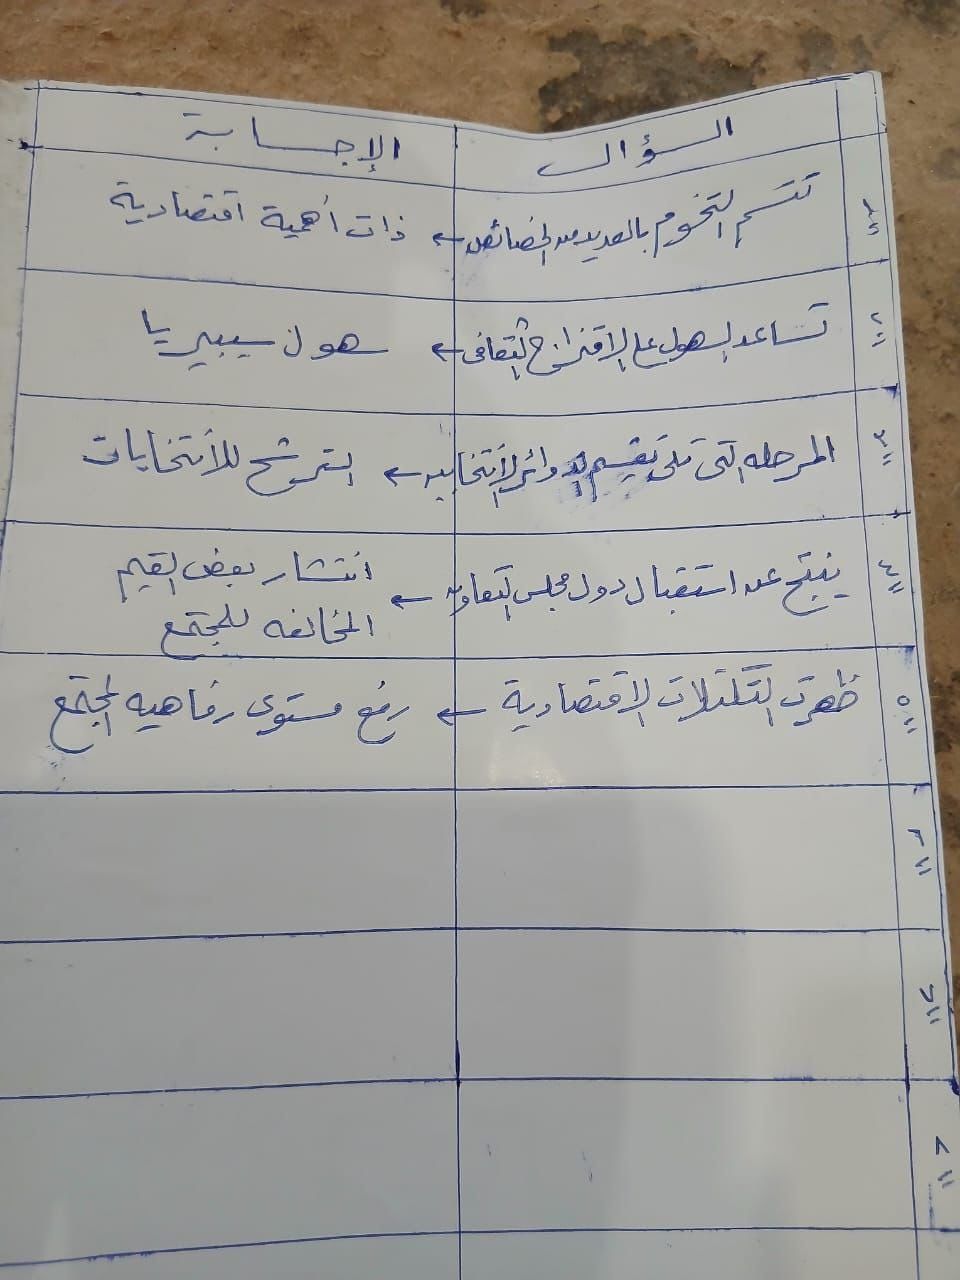 السؤال الإجابة
١ تتسم التخوم بالعديد من الخصائص ← ذات أهمية اقتصادية
٢ تساعد السهول على الإقتراح الثقافى ← سهول سيبيريا
٣ المرحله التى تلى تقسيم الدوائر الأنتخابيه ← الترشح للأنتخابات
٤ ينتج عن استقبال دول مجلس التعاون ← انتشار بعض القيم
المخالفه للمجتمع
٥ ظهرت التكتلات الاقتصادية ← رفع مستوى رفاهيه المجتمع
٦
٧
٨